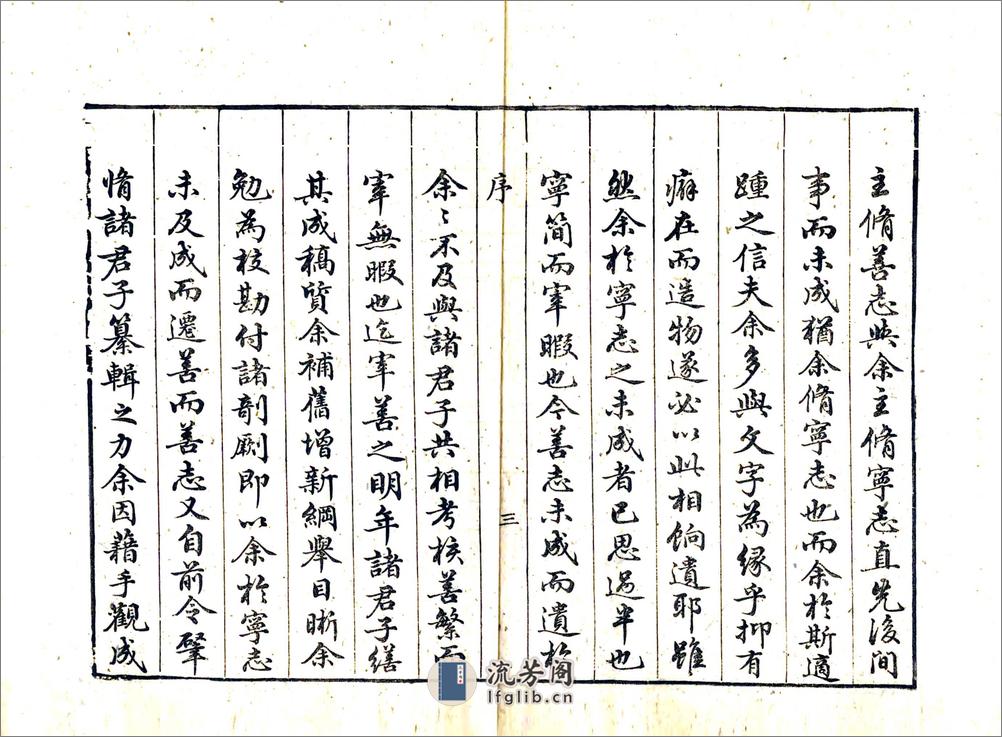 主脩善志與余主脩寧志直先後間
事而未成猶余脩寧志也而余於斯適
踵之信夫余多與文字為緣乎抑有
癖在而造物遂必以此相餉遺耶雖
然余於寧志之未成者已思過半也
寧簡而宰暇也今善志未成而遺於
序
三
余〻不及與諸君子共相考核善繁而
宰無暇也迄宰善之明年諸君子繕
其成稿質余補舊增新綱舉目晰余
勉為校勘付諸剞劂即以余於寧志
未及成而遷善而善志又自前令肇
脩諸君子纂輯之力余因藉手觀成
流芳阁
lfglib.cn